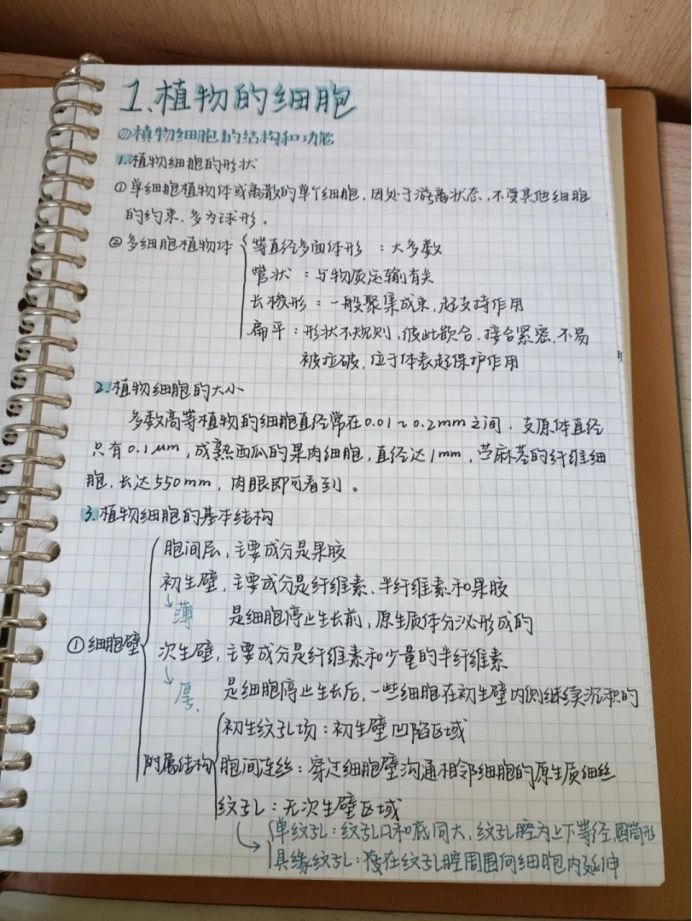 1.植物的细胞
①植物细胞的结构和功能
1.植物细胞的形状
①单细胞植物体或离散的单个细胞,因处于游离状态,不受其他细胞
的约束,多为球形。
②多细胞植物体
等直径多面体形:大多数
管状:与物质运输有关
长梭形:一般聚集成束,起支持作用
扁平:形状不规则,彼此嵌合,接合紧密,不易
被拉破,位于体表起保护作用
2.植物细胞的大小
多数高等植物的细胞直径常在0.01~0.2mm之间,支原体直径
只有0.1μm,成熟西瓜的果肉细胞,直径达1mm,苎麻茎的纤维细
胞,长达550mm,肉眼即可看到。
3.植物细胞的基本结构
①细胞壁
胞间层,主要成分是果胶
初生壁,主要成分是纤维素、半纤维素和果胶
↳薄 是细胞停止生长前,原生质体分泌形成的
次生壁,主要成分是纤维素和少量的半纤维素
↳厚. 是细胞停止生长后,一些细胞在初生壁内侧继续沉积的
附属结构
初生纹孔场:初生壁凹陷区域
胞间连丝:穿过细胞壁沟通相邻细胞的原生质细丝
纹孔:无次生壁区域
单纹孔:纹孔口和底同大,纹孔腔为上下等径圆筒形
具缘纹孔:在纹孔腔周围向细胞内延伸